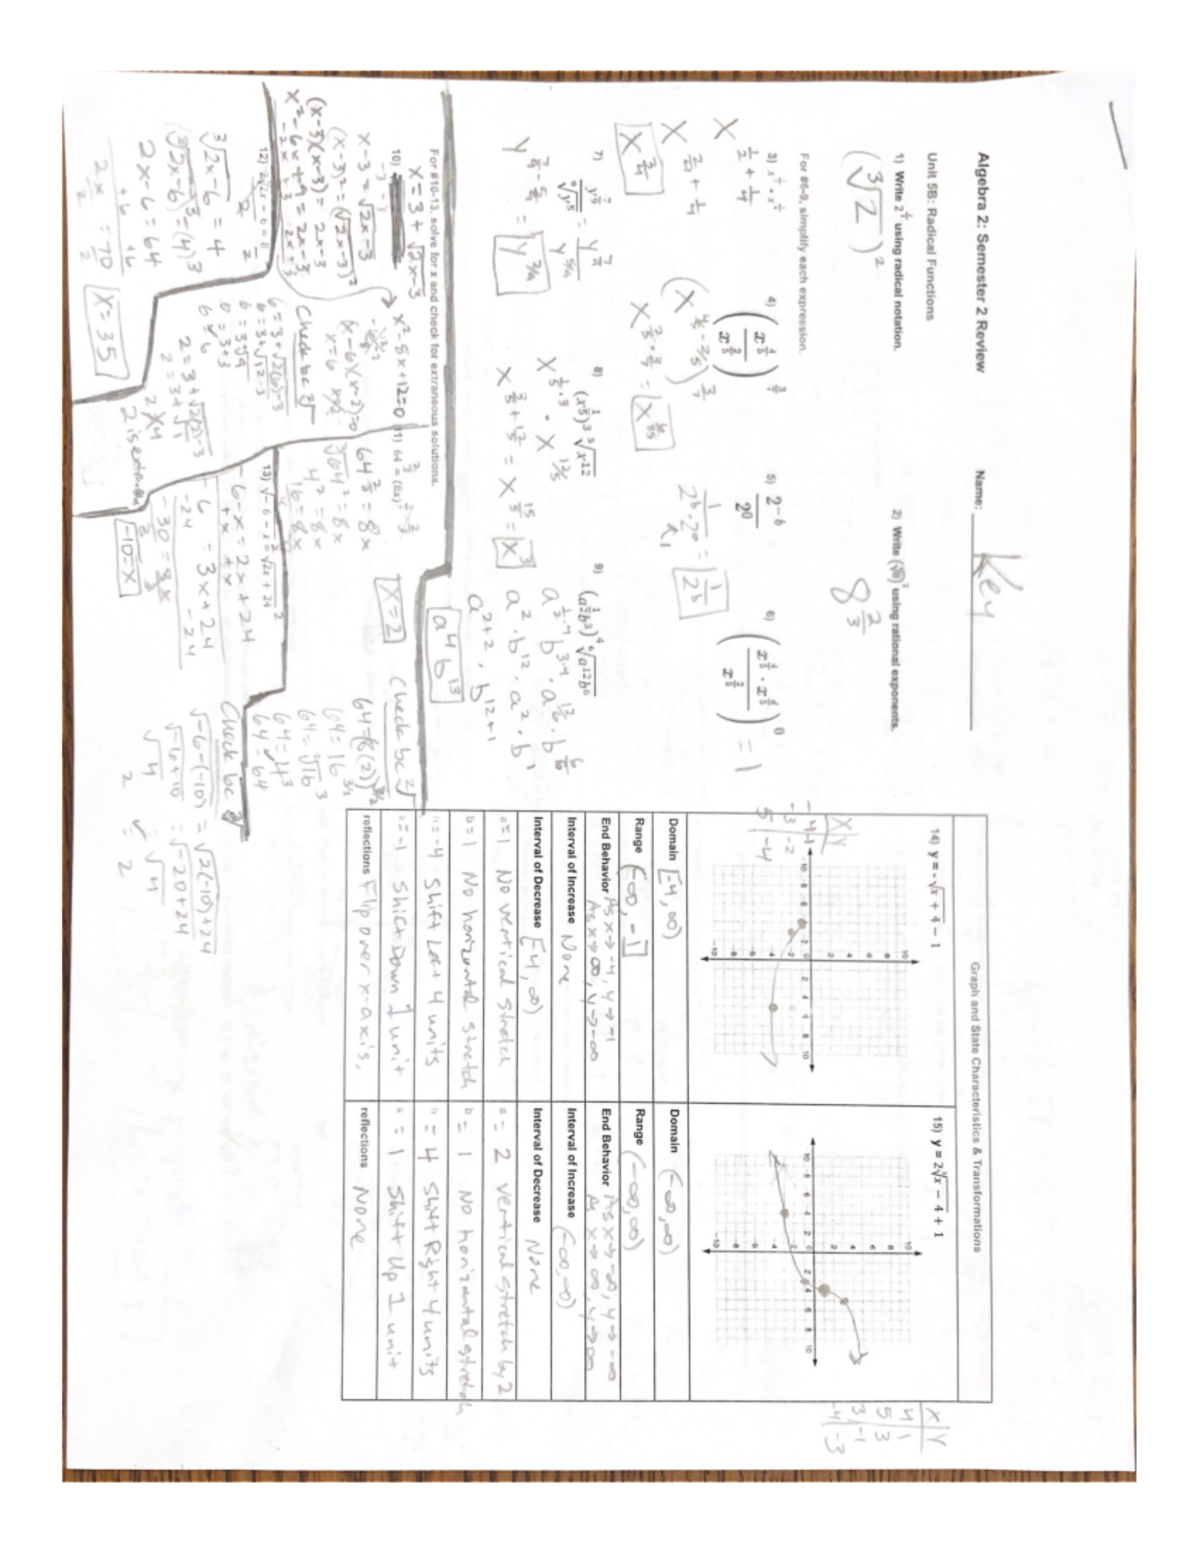 Algebra 2: Semester 2 Review
Name: Key
Unit 5B: Radical Functions
1) Write 2^{2/3} using radical notation.
(∛2)²
2) Write (∛8)² using rational exponents.
8^{2/3}
For #6-9, simplify each expression.
3) x^{1/2} · x^{1/4}
x^{1/2 + 1/4}
x^{2/4 + 1/4}
x^{3/4}
4) (x^{4/5} / x^{2/5})^{3/7}
5) 2^{-b} / 2^0
1 / 2^b · 2^0 = 1 / 2^b
1
6) = 1
7)
y^{7/4 - 5/4} = y^{2/4}
8) (x^{1/5})^3 ⁵√x^{12}
x^{1/5 · 3} · x^{12/5}
x^{3/5 + 12/5} = x^{15/5} = x^3
9) (a^{1/2}b^3)^4 ⁶√a^{12}b^6
a^{1/2 · 4} · b^{3·4} · a^{12/6} · b^{6/6}
a^2 · b^{12} · a^2 · b^1
a^{2+2} · b^{12+1}
a^4 b^{13}
For #10-13, solve for x and check for extraneous solutions.
10) x = 3 + √2x-3
-3 -3
x-3 = √2x-3
(x-3)² = (√2x-3)²
(x-3)(x-3) = 2x-3
x²-6x+9 = 2x-3
-2x +3 -2x +3
x²-8x+12=0
(x-6)(x-2)=0
x=6 x=2
Check bc √
6 = 3+√2(6)-3
6 = 3+√12-3
6 = 3√9
6 = 3+3
6 = 6
2 = 3+√2(2)-3
2 = 3+√1
2 ≠ 4
2 is extraneous
11) 64 = (8x)^{3/2}
64^{2/3} = 8x
∛64² = 8x
4² = 8x
16 = 8x
x = 2
Check bc √
64 = (8(2))^{3/2}
64 = 16^{3/2}
64 = √16³
64 = 4³
64 = 64
12)
∛2x-6 = 4
(∛2x-6)³ = (4)³
2x-6 = 64
+6 +6
2x = 70
2 2
x = 35
13) √-6 - x = √2x + 24
-6-x = 2x+24
+x +x
-6 = 3x+24
-24 -24
-30 = 3x
-10 = x
Check bc √
√-6-(-10) = √2(-10)+24
√-6+10 = √-20+24
√4 = √4
2 = 2
Graph and State Characteristics & Transformations
14) y = -√x + 4 - 1
X Y
-4 -1
-3 -2
5 -4
Domain [-4, ∞)
Range (-∞, -1]
End Behavior As x→-4, y→-1
As x→∞, y→-∞
Interval of Increase None
Interval of Decrease [-4, ∞)
a=1 No vertical stretch
b=1 No horizontal stretch
h=-4 Shift Left 4 units
k=-1 Shift Down 1 unit
reflections Flip over x-axis.
15) y = 2∛x - 4 + 1
X Y
4 1
5 3
3 -1
-4 -3
Domain (-∞,∞)
Range (-∞,∞)
End Behavior As x→-∞, y→-∞
As x→∞, y→∞
Interval of Increase (-∞,∞)
Interval of Decrease None
a= 2 vertical stretch by 2
b= 1 No horizontal stretch
h= 4 Shift Right 4 units
k= 1 Shift Up 1 unit
reflections None